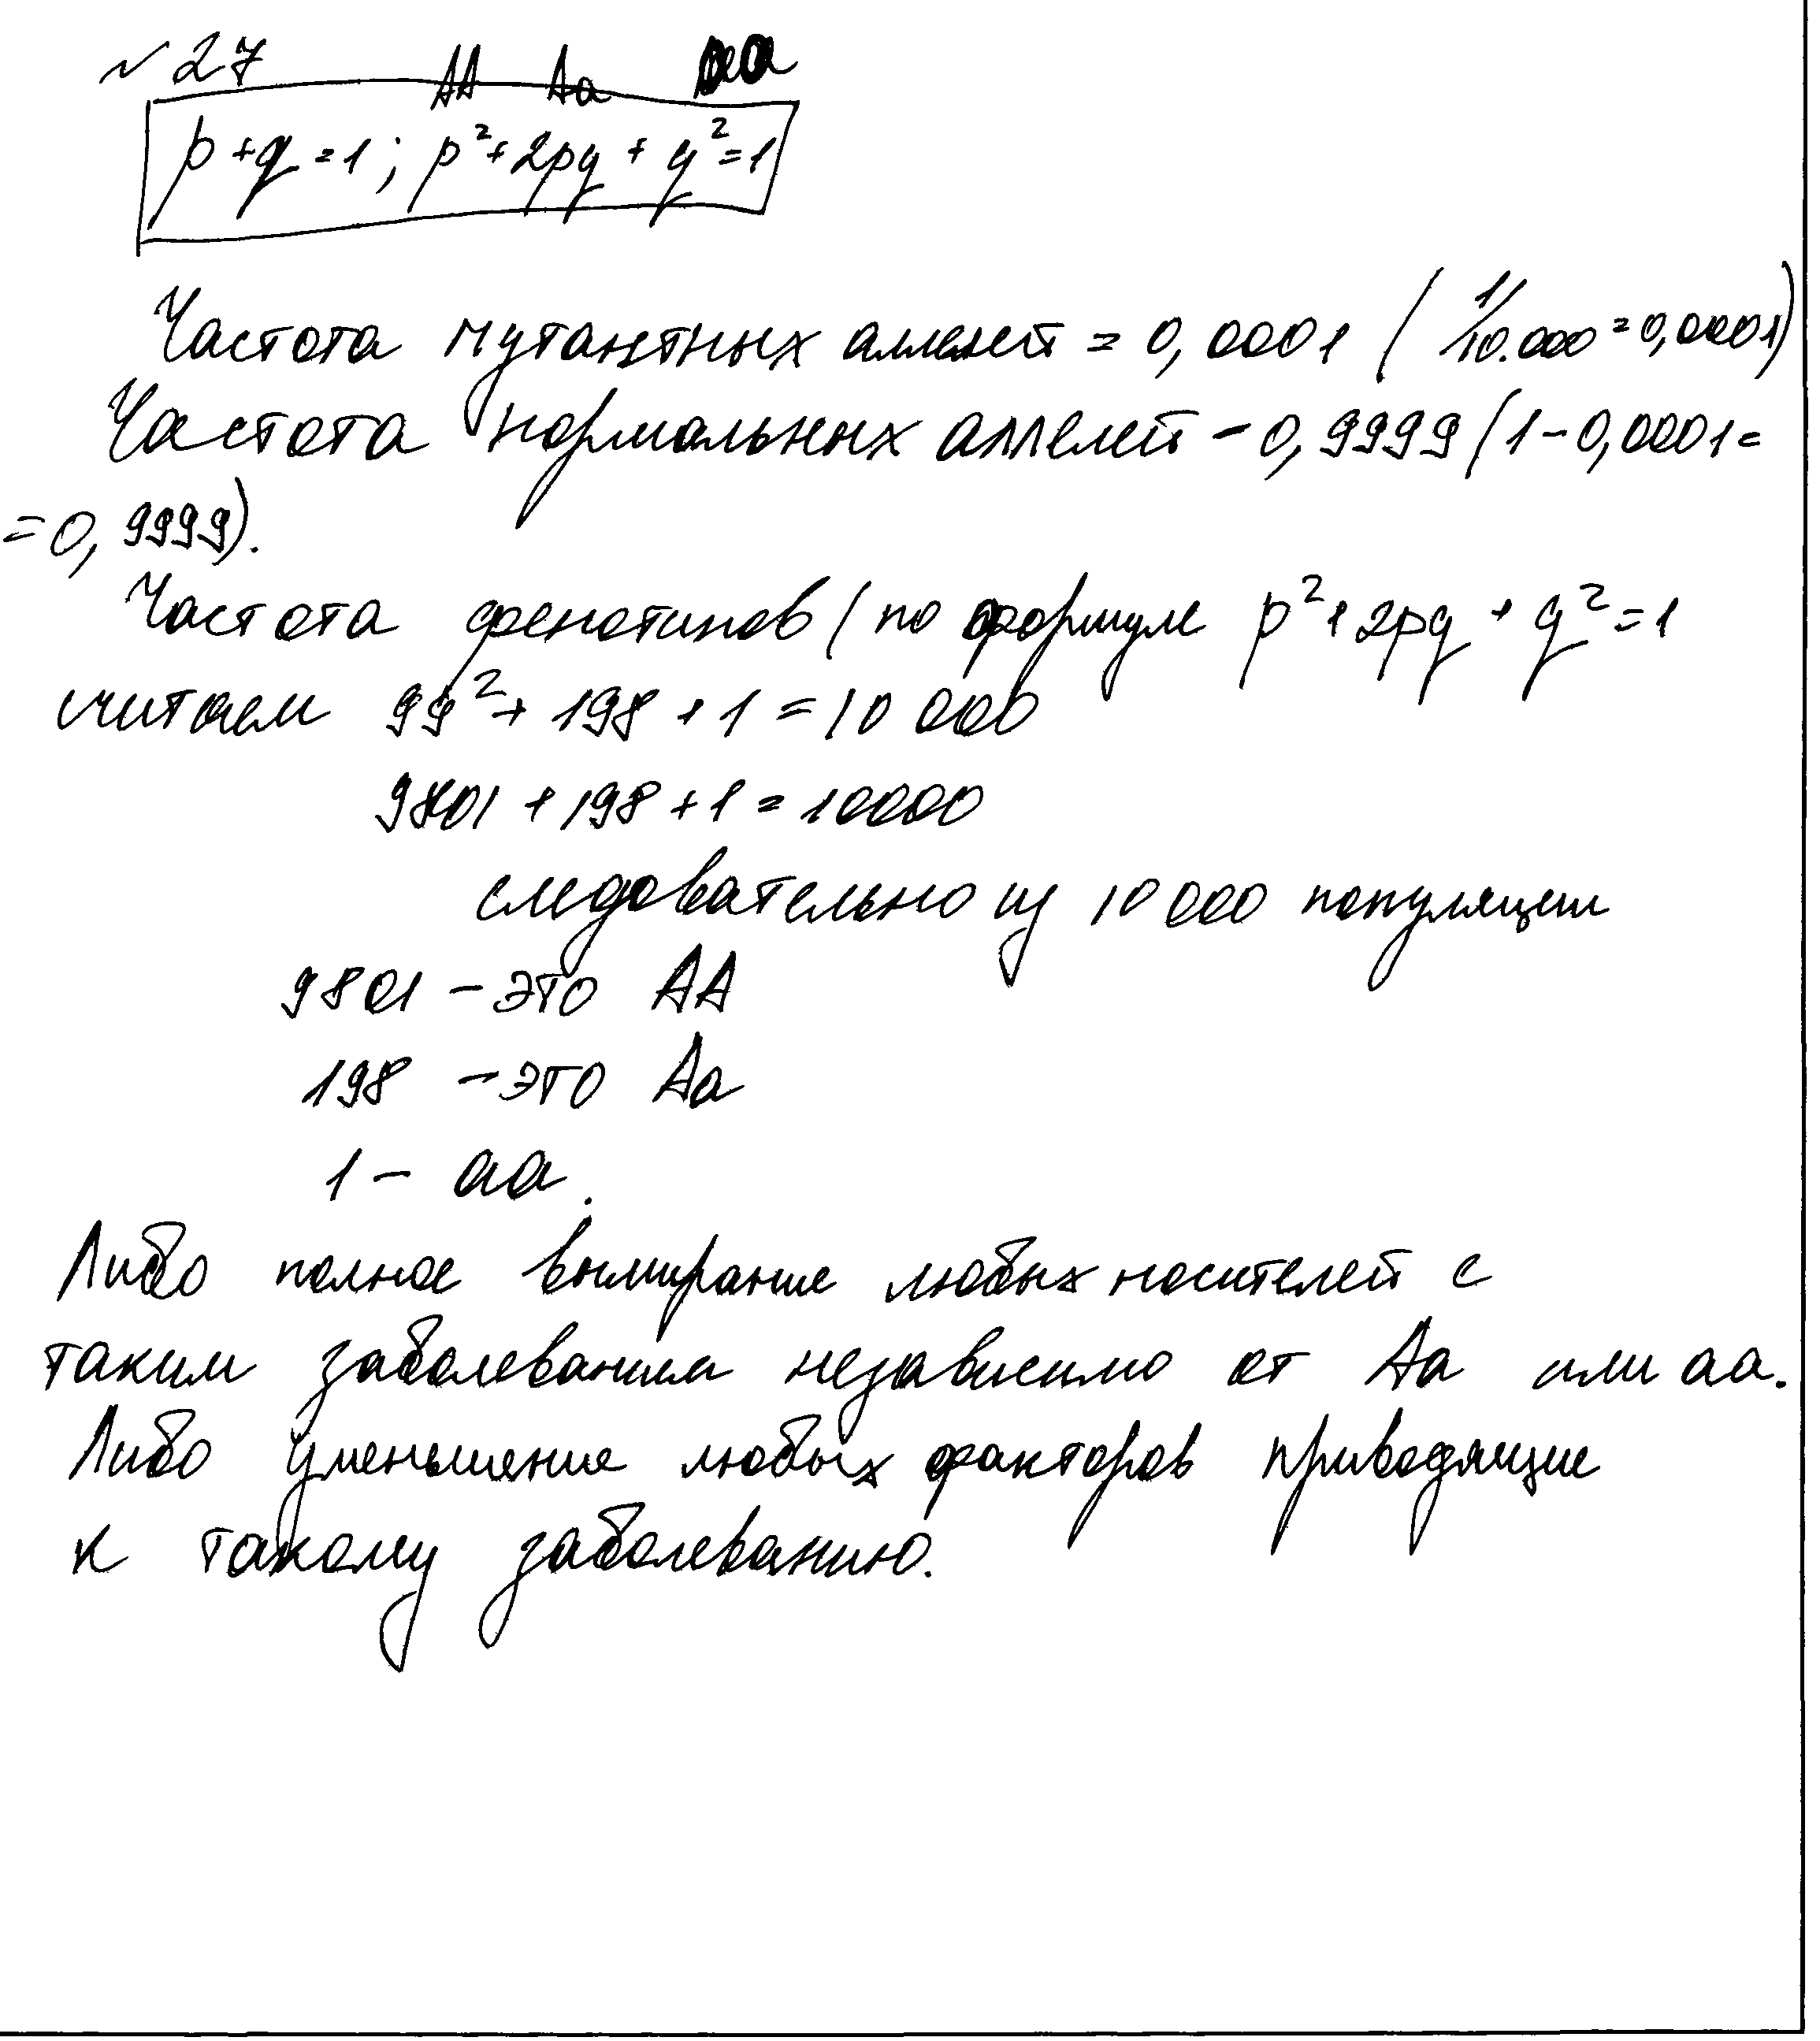 № 27
AA Aa aa
p + q = 1; p² + 2pq + q² = 1
Частота мутантных аллелей = 0,0001 (1/10.000 = 0,0001)
Частота нормальных аллелей - 0,9999 (1 - 0,0001 =
= 0,9999).
Частота фенотипов (по формуле p² + 2pq + q² = 1
считаем 99² + 198 + 1 = 10 000
9801 + 198 + 1 = 10000
следовательно из 10 000 популяции
9801 - это AA
198 - это Aa
1 - aa.
Либо полное вымирание любых носителей с
таким заболеванием независимо от Aa или aa.
Либо уменьшение любых факторов приводящие
к такому заболеванию.